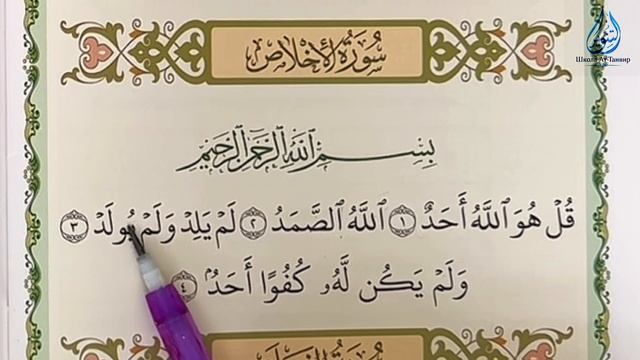 سُورَةُ الإِخْلَاصِ
بِسْمِ ٱللَّهِ ٱلرَّحْمَٰنِ ٱلرَّحِيمِ
قُلْ هُوَ ٱللَّهُ أَحَدٌ ١ ٱللَّهُ ٱلصَّمَدُ ٢ لَمْ يَلِدْ وَلَمْ يُولَدْ ٣
وَلَمْ يَكُن لَّهُۥ كُفُوًا أَحَدٌۢ ٤
Школа Ат-Танвир